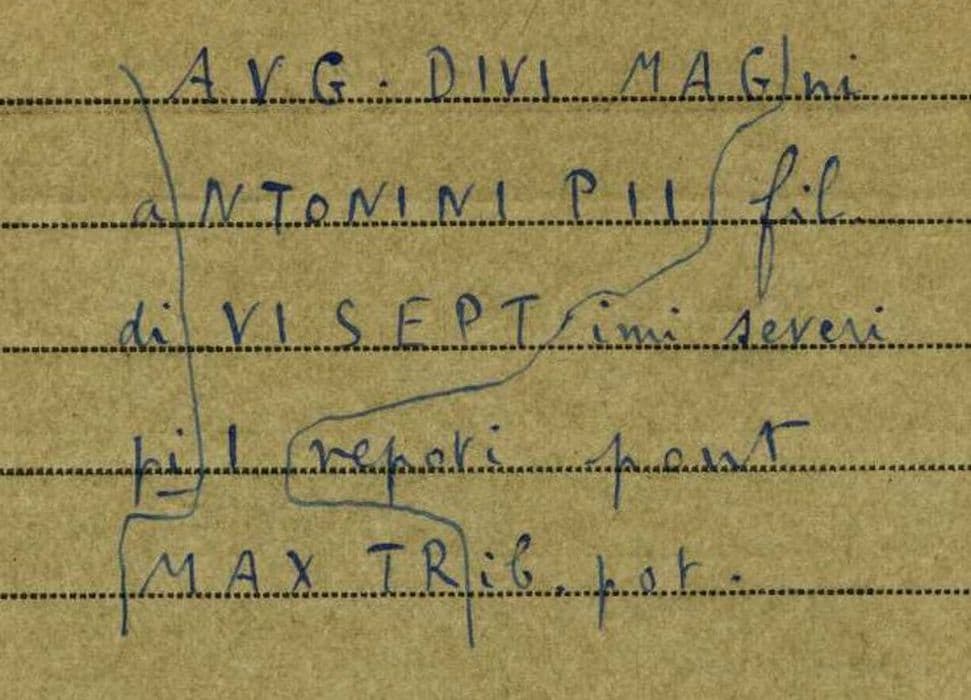 AVG. DIVI MAGni
aNTONINI PII fil.
diVI SEPTimi severi
piI nepoti pont
MAX TRib. pot.